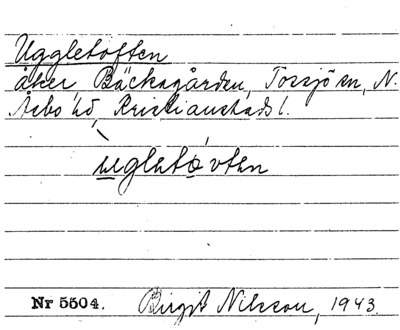 Uggletoften
åker, Bäckagården, Torsjö sn, N.
Åsbo hd, Kristianstads l.
ugletòvten
Nr 5504. Birgit Nilsson, 1943.